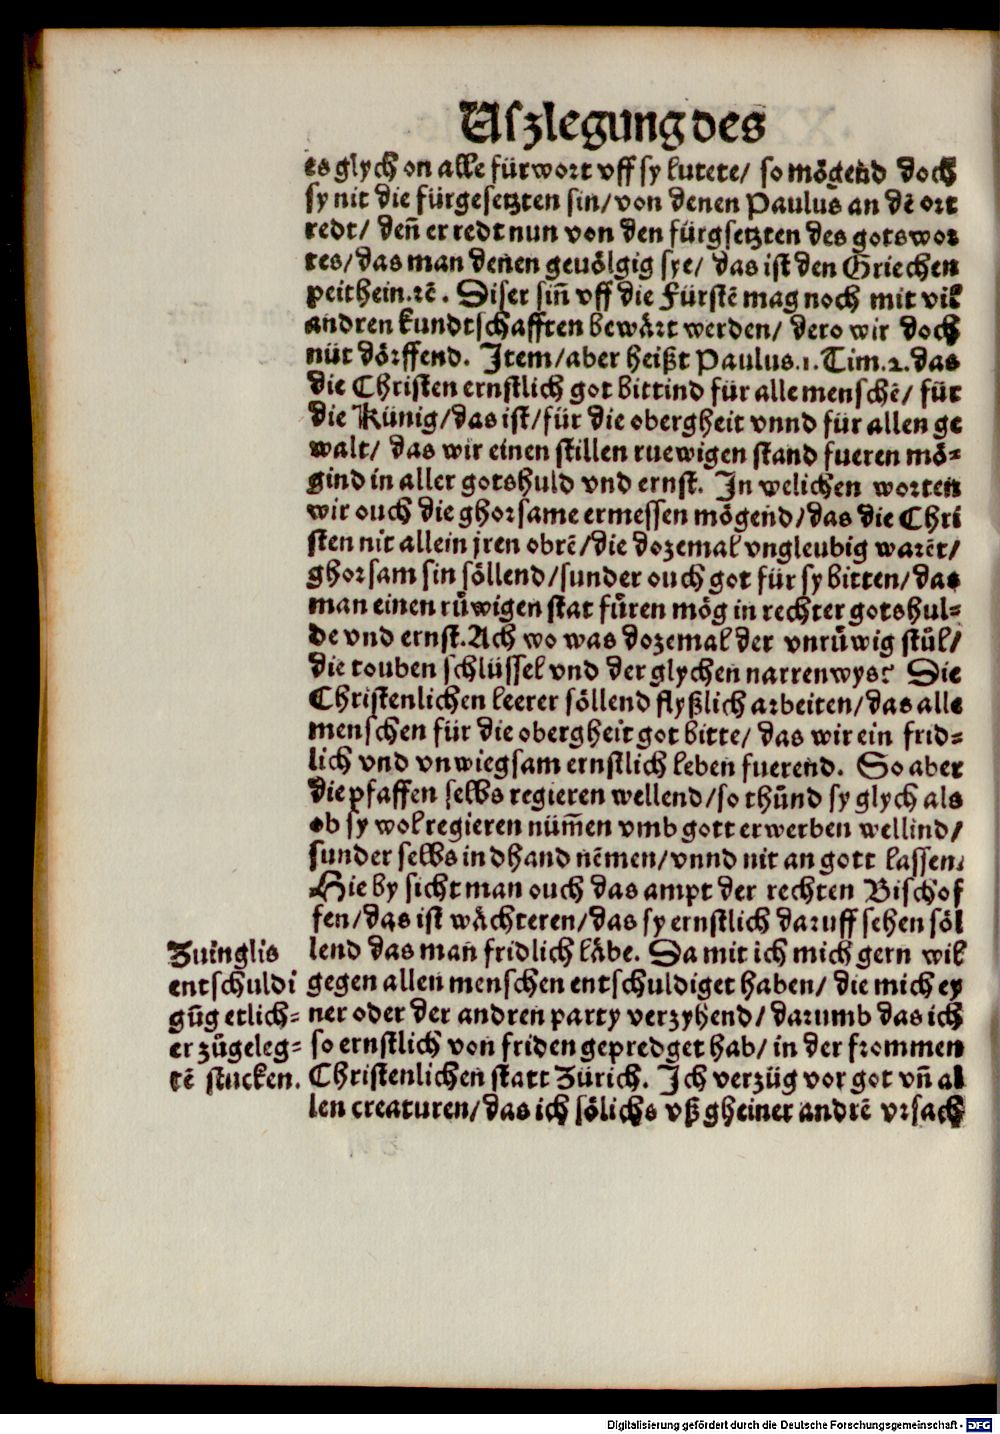 Uſzlegung des
es glych on alle fürwort vff sy lutete/ so mögend doch
sy nit die fürgesetzten sin/ von denen Paulus an dē ort
redt/ deñ er redt nun von den fürgsetzten des gotswor
tes/ das man denen geuölgig sye/ das ist den Griechen
peithein.ꝛē. Diser siñ vff die Fürstē mag noch mit vil
andren kundtschafften bewärt werden/ dero wir doch
nüt dörffend. Item/ aber heißt Paulus.1.Tim.2.das
die Christen ernstlich got bittind für alle menschē/ für
die Künig/ das ist/ für die obergheit vnnd für allen ge
walt/ das wir einen stillen ruewigen stand fueren mö-
gind in aller gotshuld vnd ernst. In welichen worten
wir ouch die ghorsame ermessen mögend/ das die Chri
sten nit allein jren obrē/ die dozemal vngleubig warēt/
ghorsam sin söllend/ sunder ouch got für sy bitten/ das
man einen rüwigen stat füren mög in rechter gotshul-
de vnd ernst. Ach wo was dozemal der vnrüwig stůl/
die touben schlüssel vnd der glychen narrenwys? Die
Christenlichen leerer söllend flyßlich arbeiten/ das alle
menschen für die obergheit got bitte/ das wir ein frid-
lich vnd vnwiegsam ernstlich leben fuerend. So aber
die pfaffen selbs regieren wellend/ so thůnd sy glych als
ob sy wol regieren nüm̃en vmb gott erwerben wellind/
sunder selbs in dhand nēmen/ vnnd nit an gott lassen.
Hie by sicht man ouch das ampt der rechten Bischof
fen/ das ist wächteren/ das sy ernstlich daruff sehen söl
lend das man fridlich läbe. Da mit ich mich gern wil
gegen allen menschen entschuldiget haben/ die mich ey
ner oder der andren party verzyhend/ darumb das ich
so ernstlich von friden gepredget hab/ in der frommen
Christenlichen statt Zürich. Ich verzüg vor got vñ al
len creaturen/ das ich sölichs vß gheiner andrē vrsach
Zuinglis
entschuldi
gūg etlich-
er zůgeleg-
tē stucken.
Digitalisierung gefördert durch die Deutsche Forschungsgemeinschaft - DFG